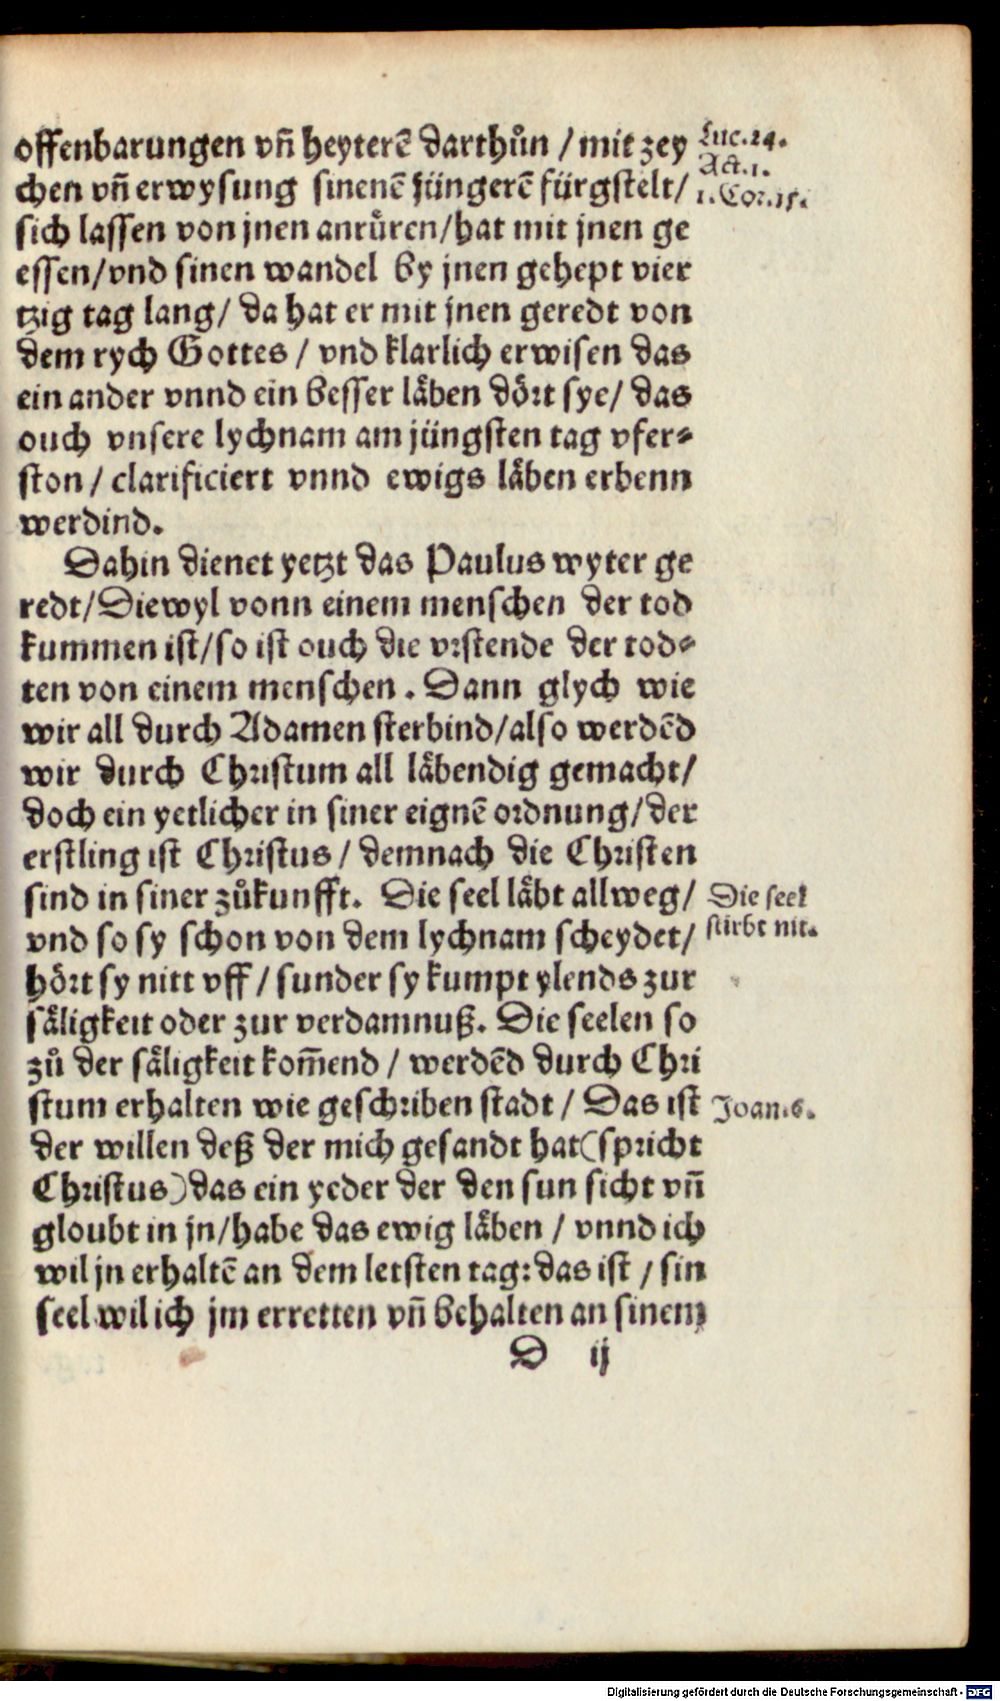 offenbarungen vn̄ heyterē darthůn / mit zey
chen vn̄ erwysung sinenē jüngerē fürgstelt/
sich lassen von jnen anrüren/hat mit jnen ge
essen/vnd sinen wandel by jnen gehept vier
tzig tag lang/ da hat er mit jnen geredt von
dem rych Gottes / vnd klarlich erwisen das
ein ander vnnd ein besser låben dört sye/ das
ouch vnsere lychnam am jüngsten tag vfer⸗
ston / clarificiert vnnd ewigs låben erbenn
werdind.
Dahin dienet yetzt das Paulus wyter ge
redt/Diewyl vonn einem menschen der tod
kummen ist/so ist ouch die vrstende der tod⸗
ten von einem menschen. Dann glych wie
wir all durch Adamen sterbind/also werdēd
wir durch Christum all låbendig gemacht/
doch ein yetlicher in siner eignē ordnung/der
erstling ist Christus / demnach die Christen
sind in siner zůkunfft. Die seel låbt allweg/
vnd so sy schon von dem lychnam scheydet/
hört sy nitt vff / sunder sy kumpt ylends zur
såligkeit oder zur verdamnuß. Die seelen so
zů der såligkeit kom̄end / werdēd durch Chri
stum erhalten wie geschriben stadt / Das ist
der willen deß der mich gesandt hat(spricht
Christus)das ein yeder der den sun sicht vn̄
gloubt in jn/habe das ewig låben / vnnd ich
wil jn erhaltē an dem letsten tag:das ist / sin
seel wil ich jm erretten vn̄ behalten an sinem
D ij
Luc.24.
Act.1.
1.Cor.15.
Die seel
stirbt nit.
Joan.6.
Digitalisierung gefördert durch die Deutsche Forschungsgemeinschaft - DFG